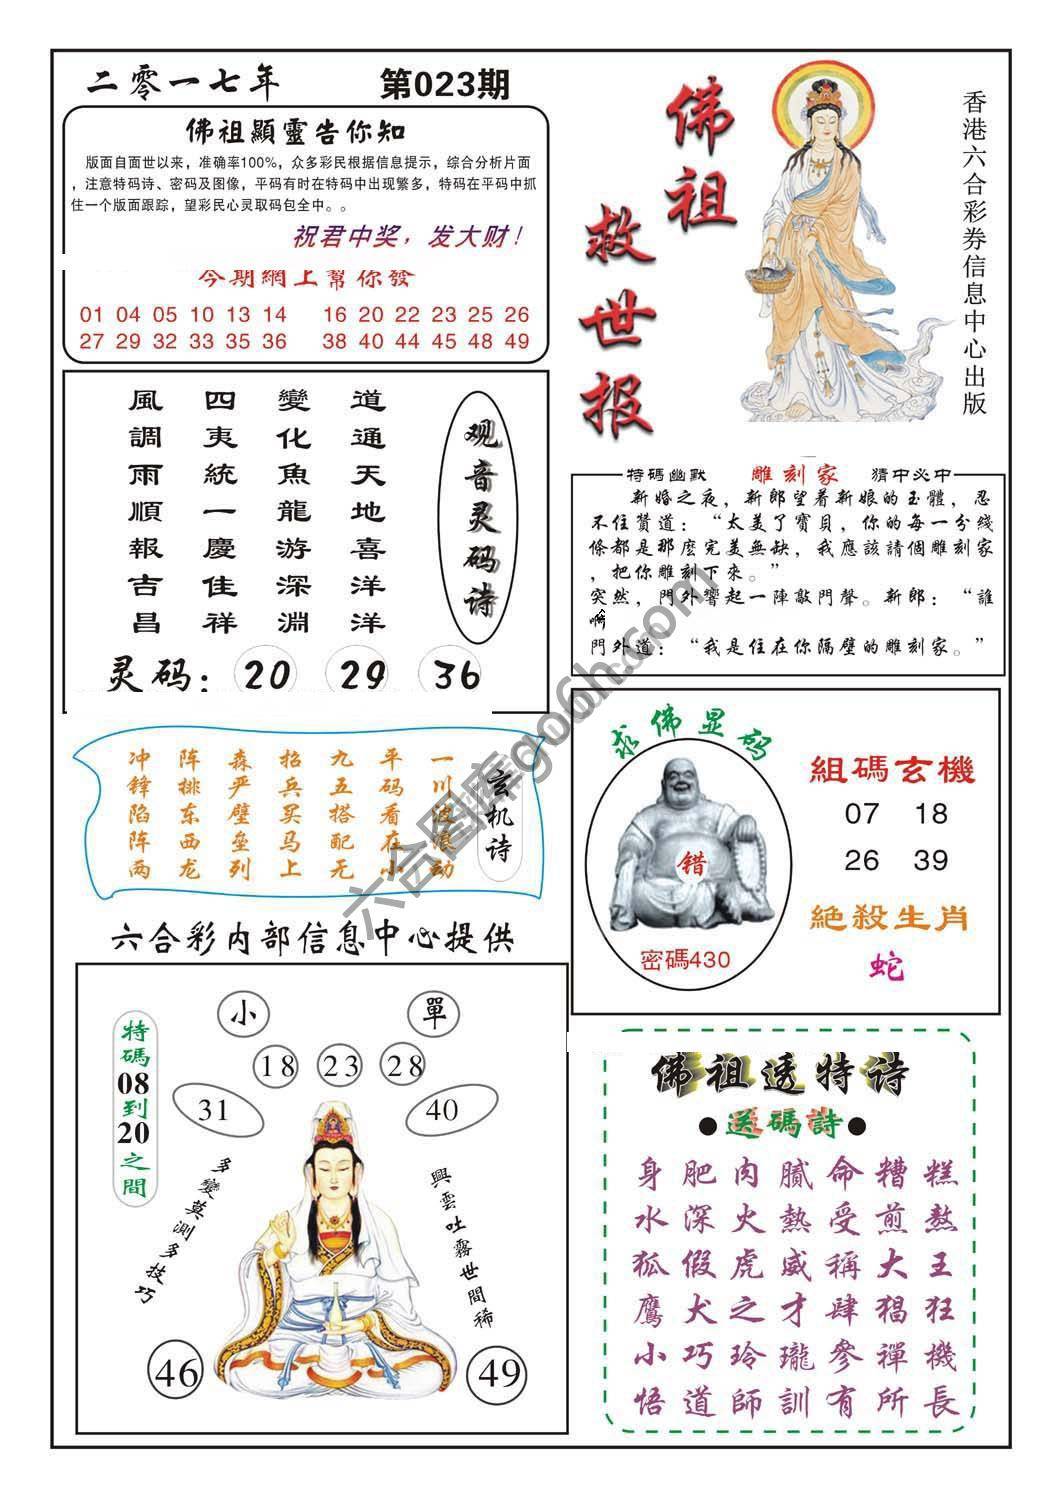 二零一七年 第023期
佛祖顯靈告你知
版面自面世以来，准确率100%，众多彩民根据信息提示，综合分析片面
，注意特码诗、密码及图像，平码有时在特码中出现繁多，特码在平码中抓
住一个版面跟踪，望彩民心灵取码包全中。。
祝君中奖，发大财！
今期網上幫你發
01 04 05 10 13 14 16 20 22 23 25 26
27 29 32 33 35 36 38 40 44 45 48 49
佛祖救世报
香港六合彩券信息中心出版
观音灵码诗
道通天地喜洋洋
變化魚龍游深淵
四夷統一慶佳祥
風調雨順報吉昌
灵码：20 29 36
特碼幽默 雕刻家 猜中必中
新婚之夜，新郎望着新娘的玉體，忍
不住贊道：“太美了寶貝，你的每一分綫
條都是那麼完美無缺，我應該請個雕刻家
，把你雕刻下來。”
突然，門外響起一陣敲門聲。新郎：“誰
啊
門外道：“我是住在你隔壁的雕刻家。”
玄机诗
一川波浪动
平码看在小
九五搭配无
招兵买马上
森严壁垒列
阵排东西龙
冲锋陷阵两
求佛显码
错
密碼430
組碼玄機
07 18
26 39
絕殺生肖
蛇
六合彩内部信息中心提供
特碼08到20之間
小 單
18 23 28
31 40
多變莫測多技巧
興雲吐霧世間稀
46 49
佛祖透特诗
●送碼詩●
身肥肉膩命糟糕
水深火熱受煎熬
狐假虎威稱大王
鷹犬之才肆猖狂
小巧玲瓏參禪機
悟道師訓有所長
六合图库go6h.com